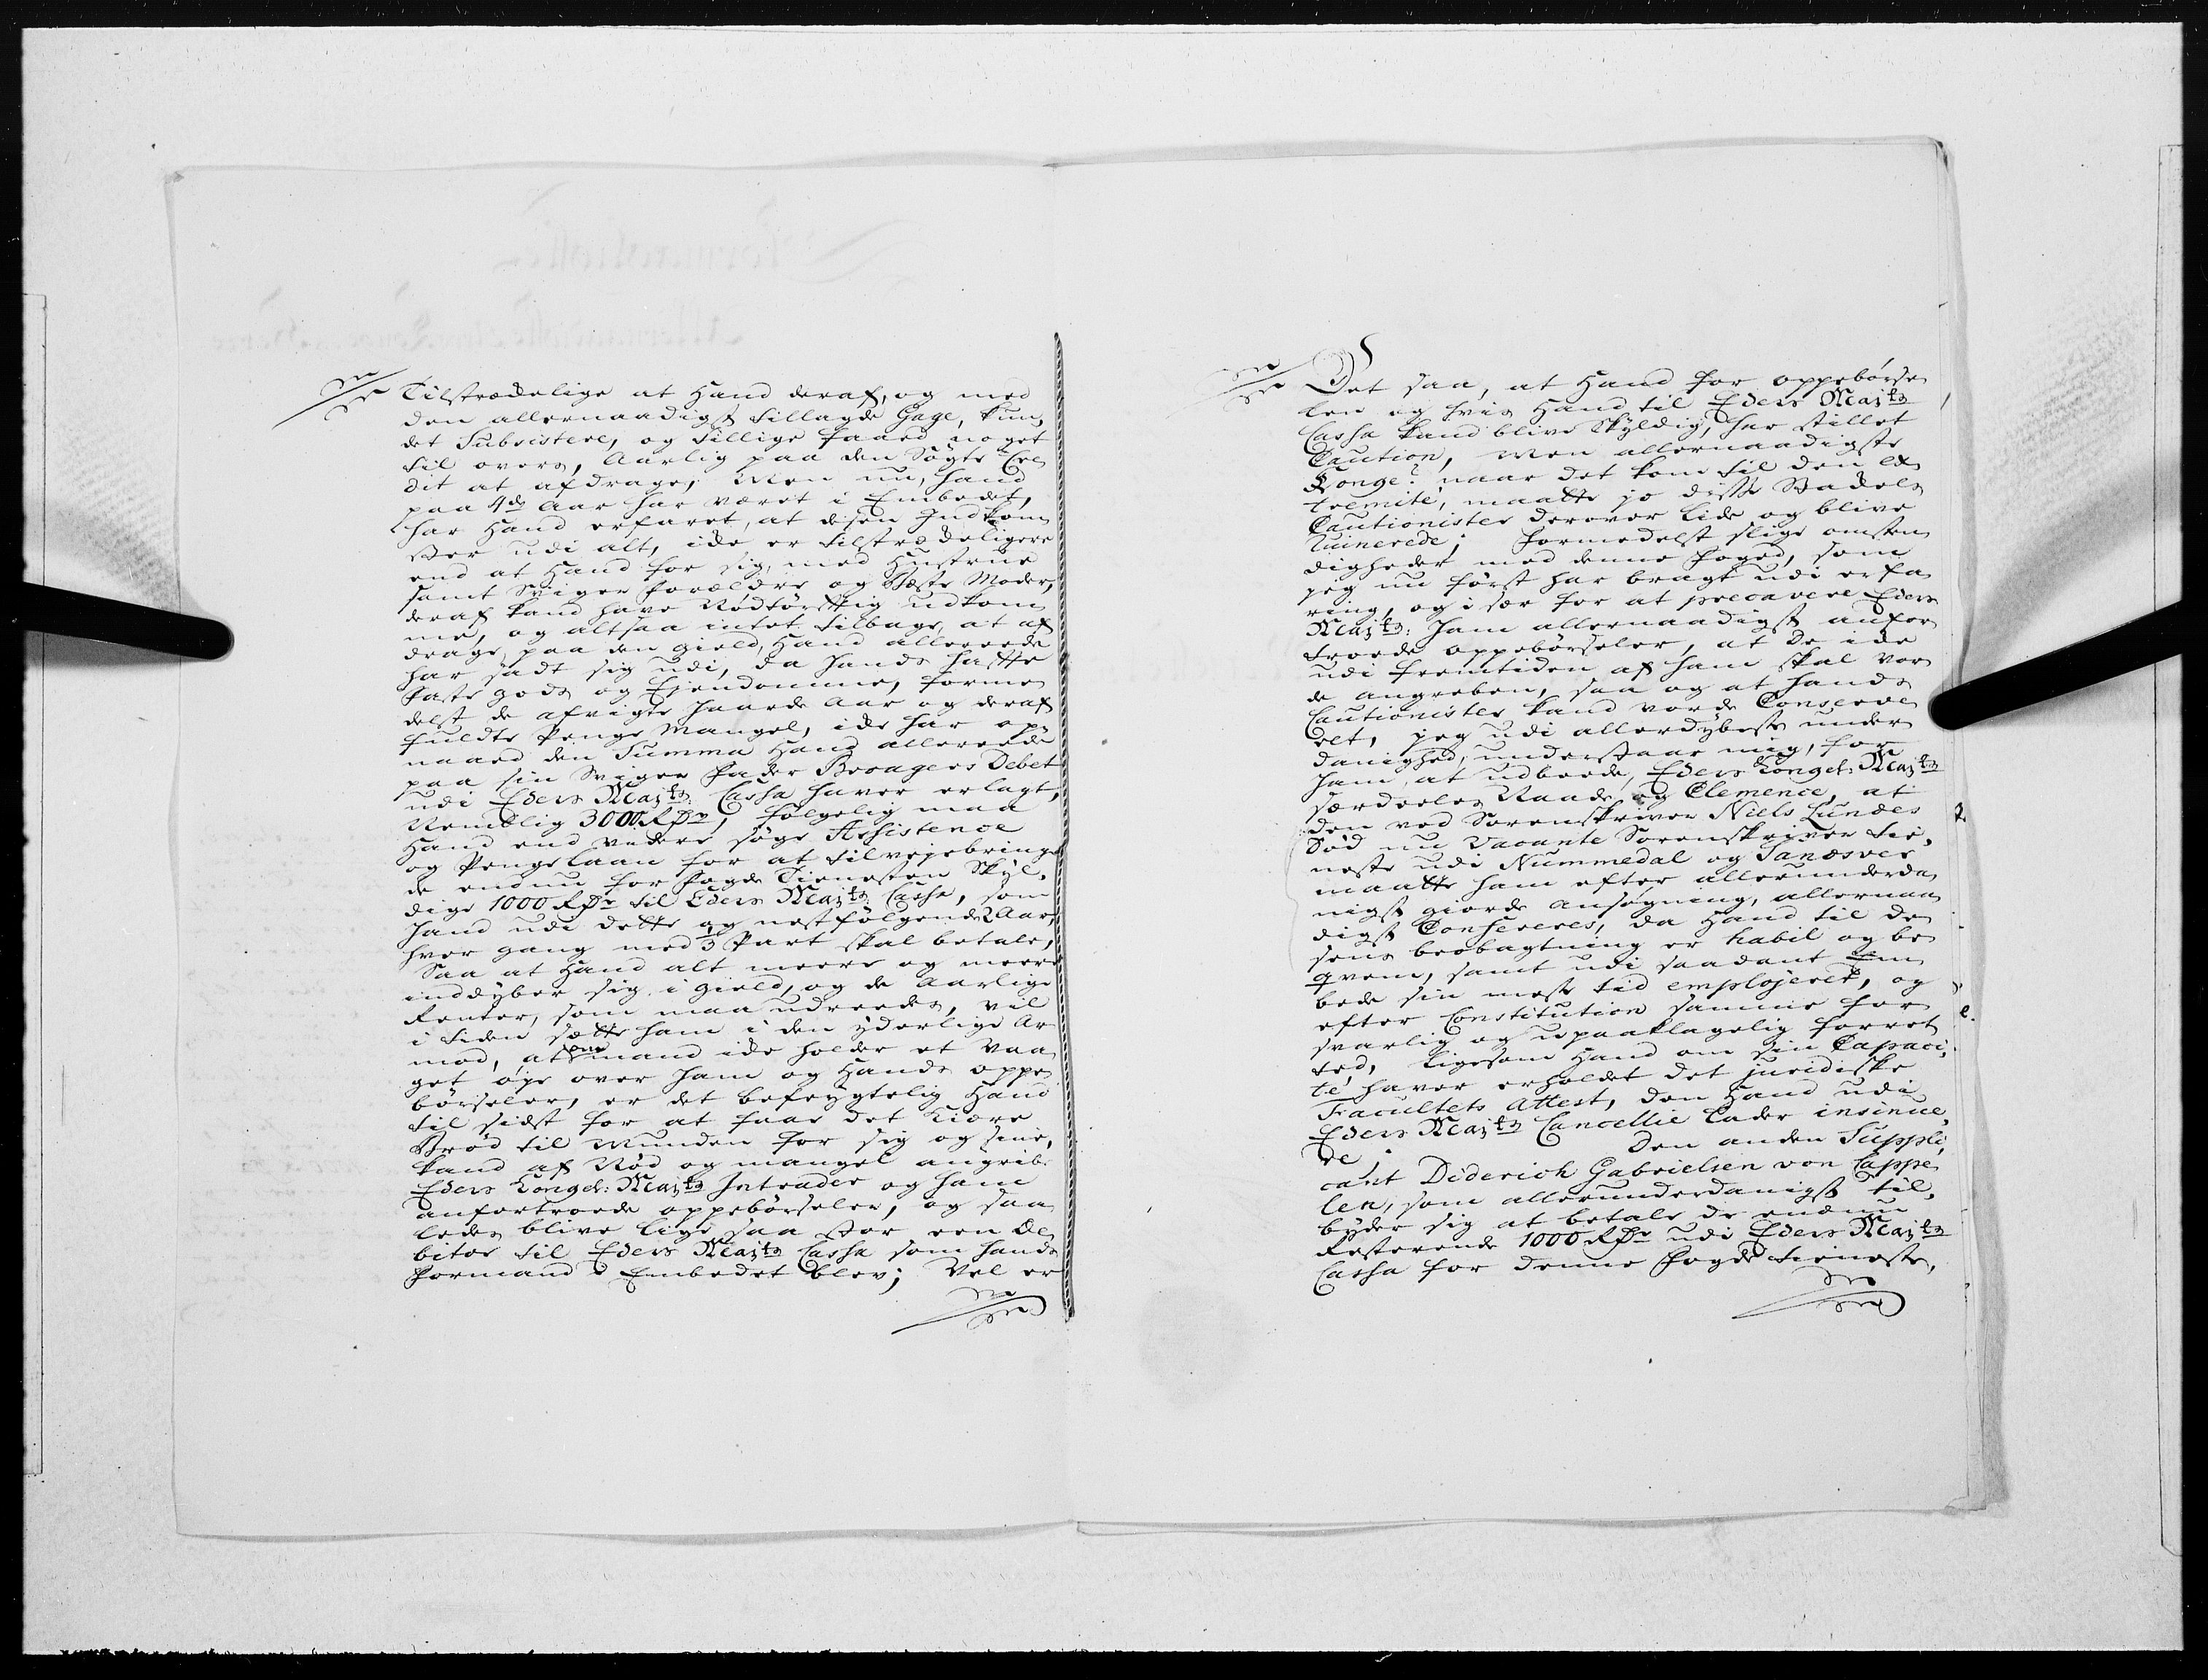 Tilstrædelige at Hand deraf, og med
den allernaadigst tillagde Gage, kun,
det Subsistere, og tillige faaed noget
til overs, Aarlig paa den Søgte Cre
dit at afdrage; Men nu, hand
paa 4de Aar har været i Embedet,
har Hand erfaret, at dissen Indkom
ster udi alt, icke er tilstrædeligere
end at Hand for sig, med Hustrue
samt Sviger forældre og Kiæste Moder,
deraf kand have Nødtørfftig udkom
me, og altsaa intet tilbage, at af
drage, paa den gield, Hand allereede
har sadt sig udi, da hands haffte
faste gods og Ejendomme, forme
delst de afvigte haarde Aar og deraf
fuldte Penge Mangel, icke har op
naaed den Summa Hand allereede
paa sin Sviger fader Broagers Debet
udi Eders Majts Cassa haver erlagt,
Nemblig 3000 Rdr, følgelig maa
Hand end videre søge Assistence
og Penge laan for at tilvejebringe
de endnu for fogde Tienesten Skyl,
dige 1000 Rdr til Eders Majts Cassa, som
hand udi dette og nestfølgende 2 Aar,
hver gang med 1/3 Part skal betale,
Saa at Hand alt meere og meere
inddyber sig i gield, og de Aarlige
Renter, som maa udreedes, vil
i tiden sætte ham i den yderlige Ar
mod, at om mand icke holder et Vaa
get øye over ham og Hands oppe
børseler, er det befrygtelig Hand
til sidst for at faae det Kiære
Brød til Munden for sig og sine,
kand af Nød og mangel angribe
Eders Kongel: Majts Intrader og ham
anfortroede oppebørseler, og saa
ledes blive lige saa stor een De
bitor til Eders Majts Cassa som hands
Formand i Embedet blev; Vel er
Det saa, at Hand for oppebørse
len og hvis Hand til Eders Majts
Cassa kand blive Skyldig, har stillet
Caution, Men allernaadigste
Konge! naar det kom til den ex
tremité, maatte jo disse Stackels
Cautionister derover lide og blive
Ruinerede; Formedelst slige omsten
digheder med denne foged, som
jeg nu først har bragt udi erfa
ring, og i sær for at precavere Eders
Majts: ham allernaadigst anfor
troede oppebørseler, at De icke
udi fremtiden af ham skal vor
de angreben, saa og at hands
Cautionister kand vorde Conserve
ret, jeg udi allerdybeste under
danighed, understaar mig, for
ham, at udbeede, Eders Kongel: Majts
særdeeles Naade og Clemence, at
den ved Sorenskriver Niels Lundes
Død nu Vacante Sorenskriver tie,
neste udi Nummedal og Sandsver
maatte ham efter allerunderda
nigst giorde ansøgning, allernaa
digst Confereres, da Hand til de
sens beobagtning er habil og be
qvem, samt udi saadant Em
bede sin meste tid employeret, og
efter Constitution samme for
svarlig og upaaklagelig forret
ted, ligesom Hand om sin Capaci,
té haver erholdet det juridiske
Facultets Attest, den Hand udi
Eders Majts Cancellie lader insinue,
re. Den anden Suppli,
cant Diderich Gabrielsen von Cappe
len, som allerunderdanigst til,
byder sig at betale de endnu
Resterende 1000 Rdr udi Eders Majts
Cassa for denne fogde tieneste,